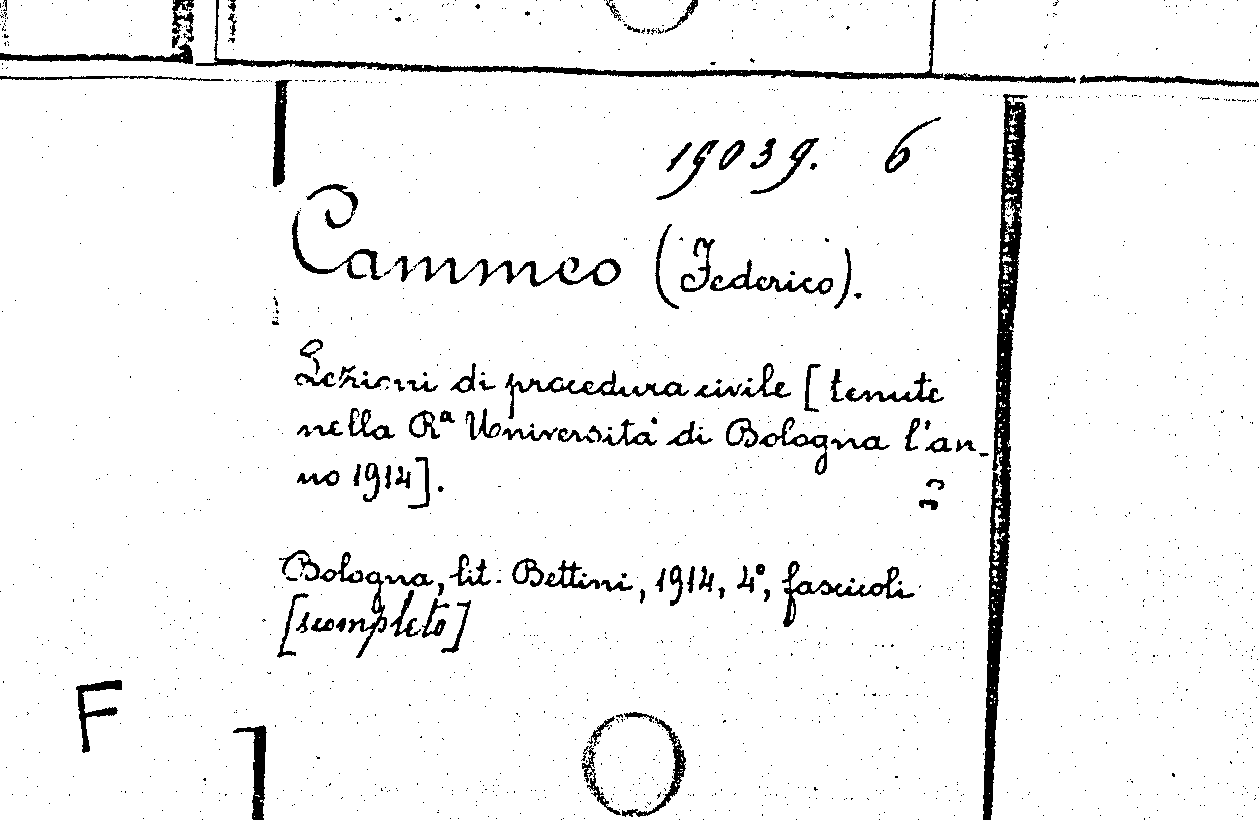 19039. 6
Cammeo (Federico).
Lezioni di procedura civile [tenute
nella Rª Università di Bologna l'an-
no 1914].
Bologna, lit. Bettini, 1914, 4°, fascicoli
[scompleto]
F